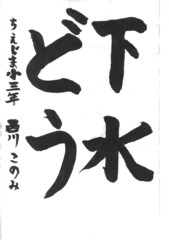 下水
どう
ちえじま小三年 西川このみ